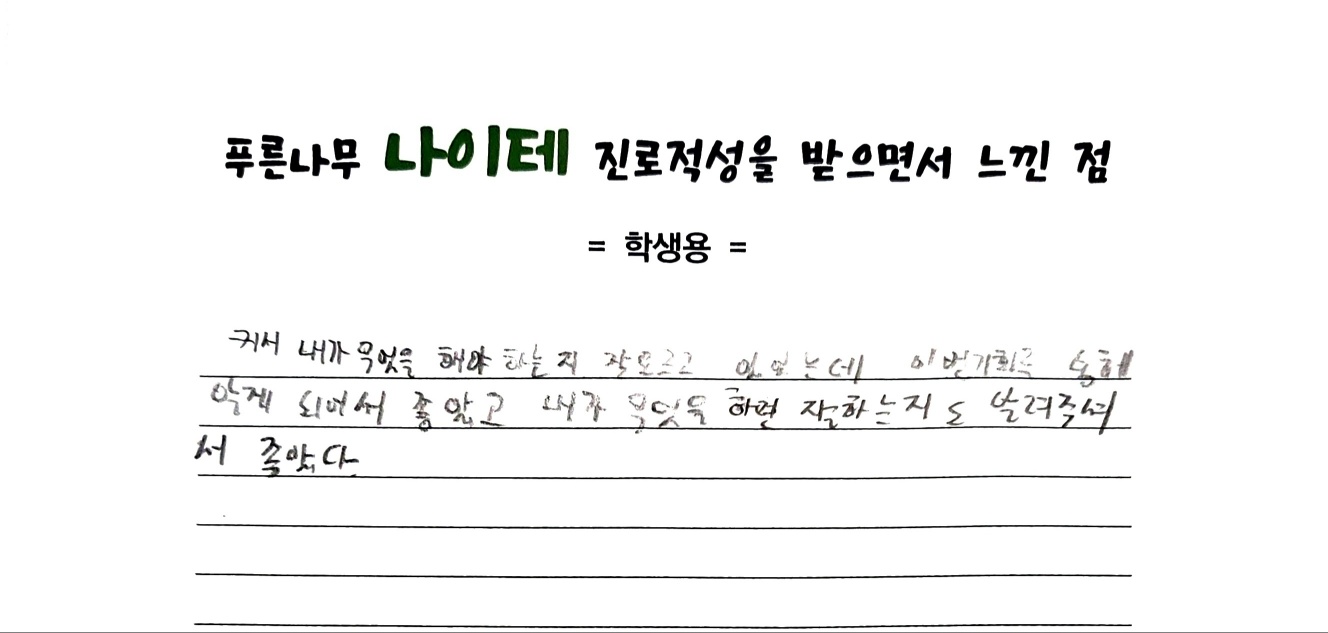 푸른나무 나이테 진로적성을 받으면서 느낀 점
= 학생용 =
커서 내가 무엇을 해야 하는지 잘모르고 있었는데 이번기회를 통해
알게 되어서 좋았고 내가 무엇을 하면 잘하는지도 알려주어
서 좋았다